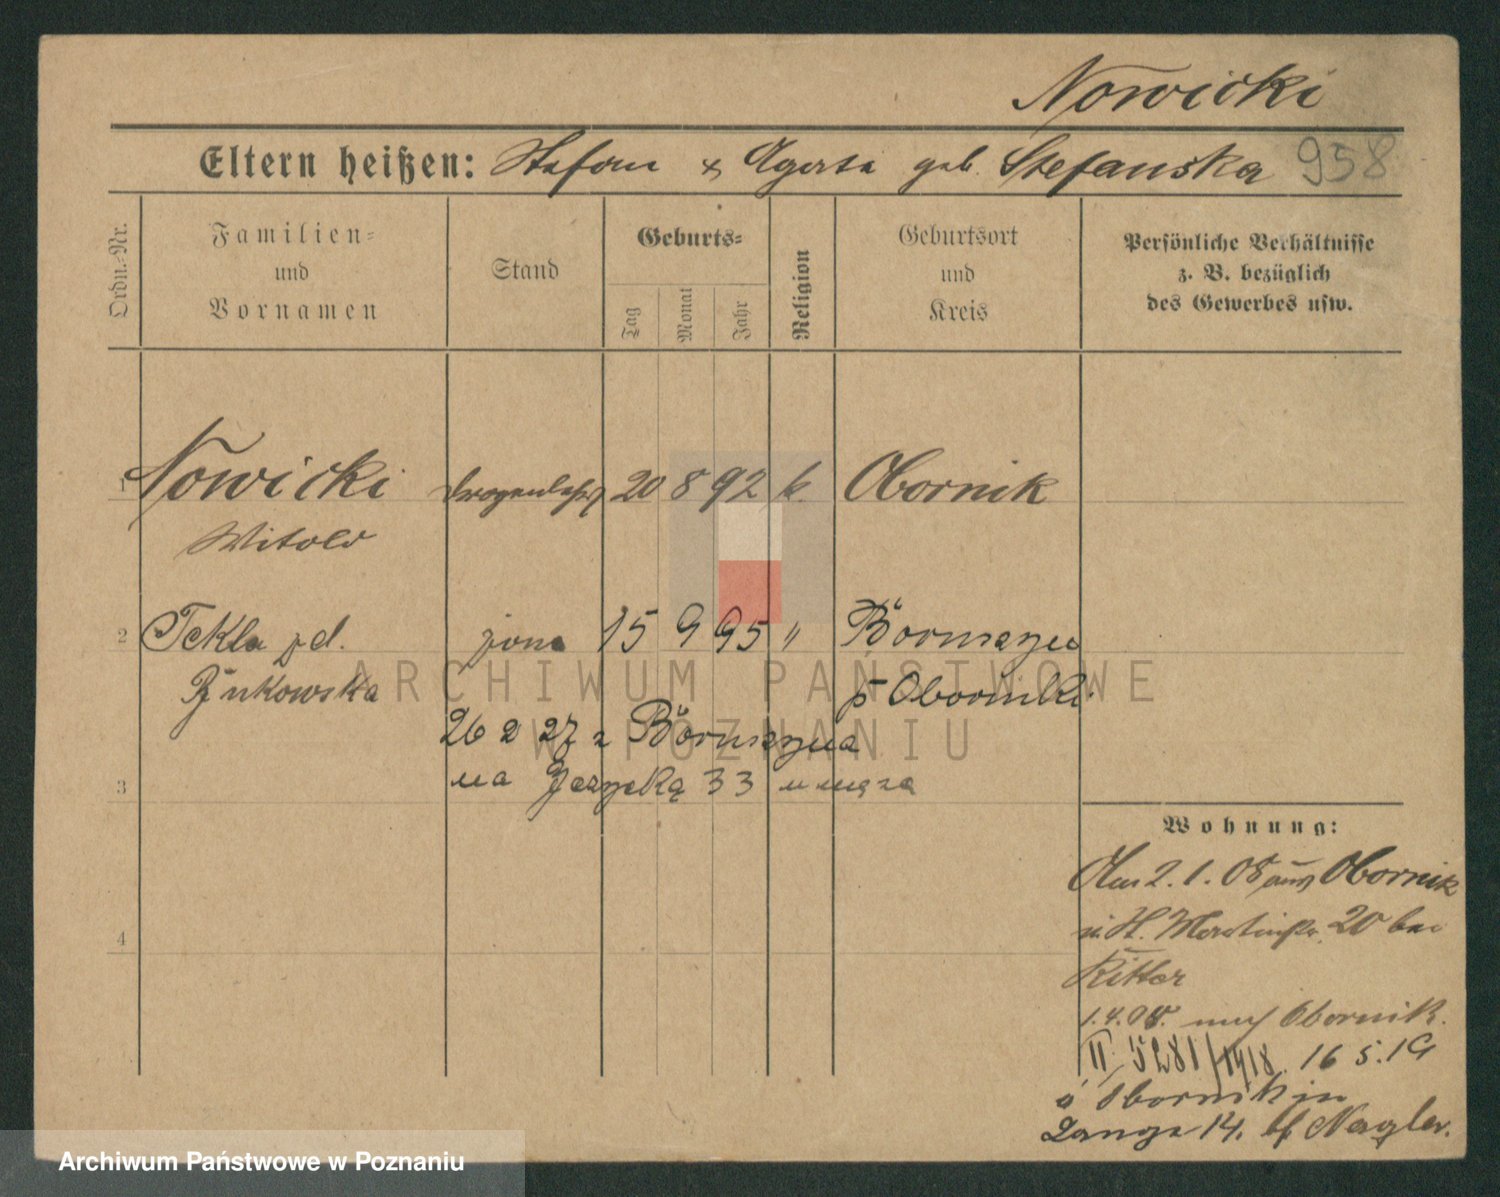 Nowicki
Eltern heißen: Stefan & Agata geb. Stefanska 958
Ordn.-Nr.
Familien-
und
Vornamen
Stand
Geburts-
Tag
Monat
Jahr
Religion
Geburtsort
und
Kreis
Persönliche Verhältnisse
z. B. bezüglich
des Gewerbes usw.
1 Nowicki 20 8 92 k. Obornik
Witold
2 Tekla z d. żona 15 9 95 " Boruszyn
Żukowska p Oborniki
26 2 27 z Boruszyna
3 na Jeżycką 33 u męża
4
Wohnung:
Am 2. 1. 08 aus Obornik
n. St. Martinstr. 20 bei
Ritter
1. 4. 08. nach Obornik.
II 5281/1918. 16 5. 19
Obornik in
Lange 14. b/ Nagler.
ARCHIWUM PAŃSTWOWE
W POZNANIU
Archiwum Państwowe w Poznaniu